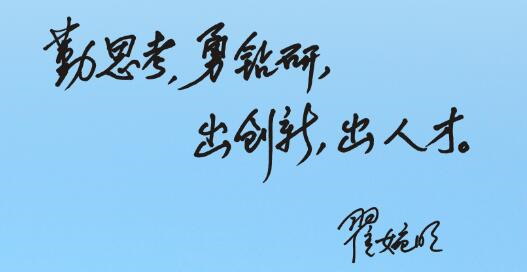 勤思考,勇钻研,
出创新,出人才。
翟婉明